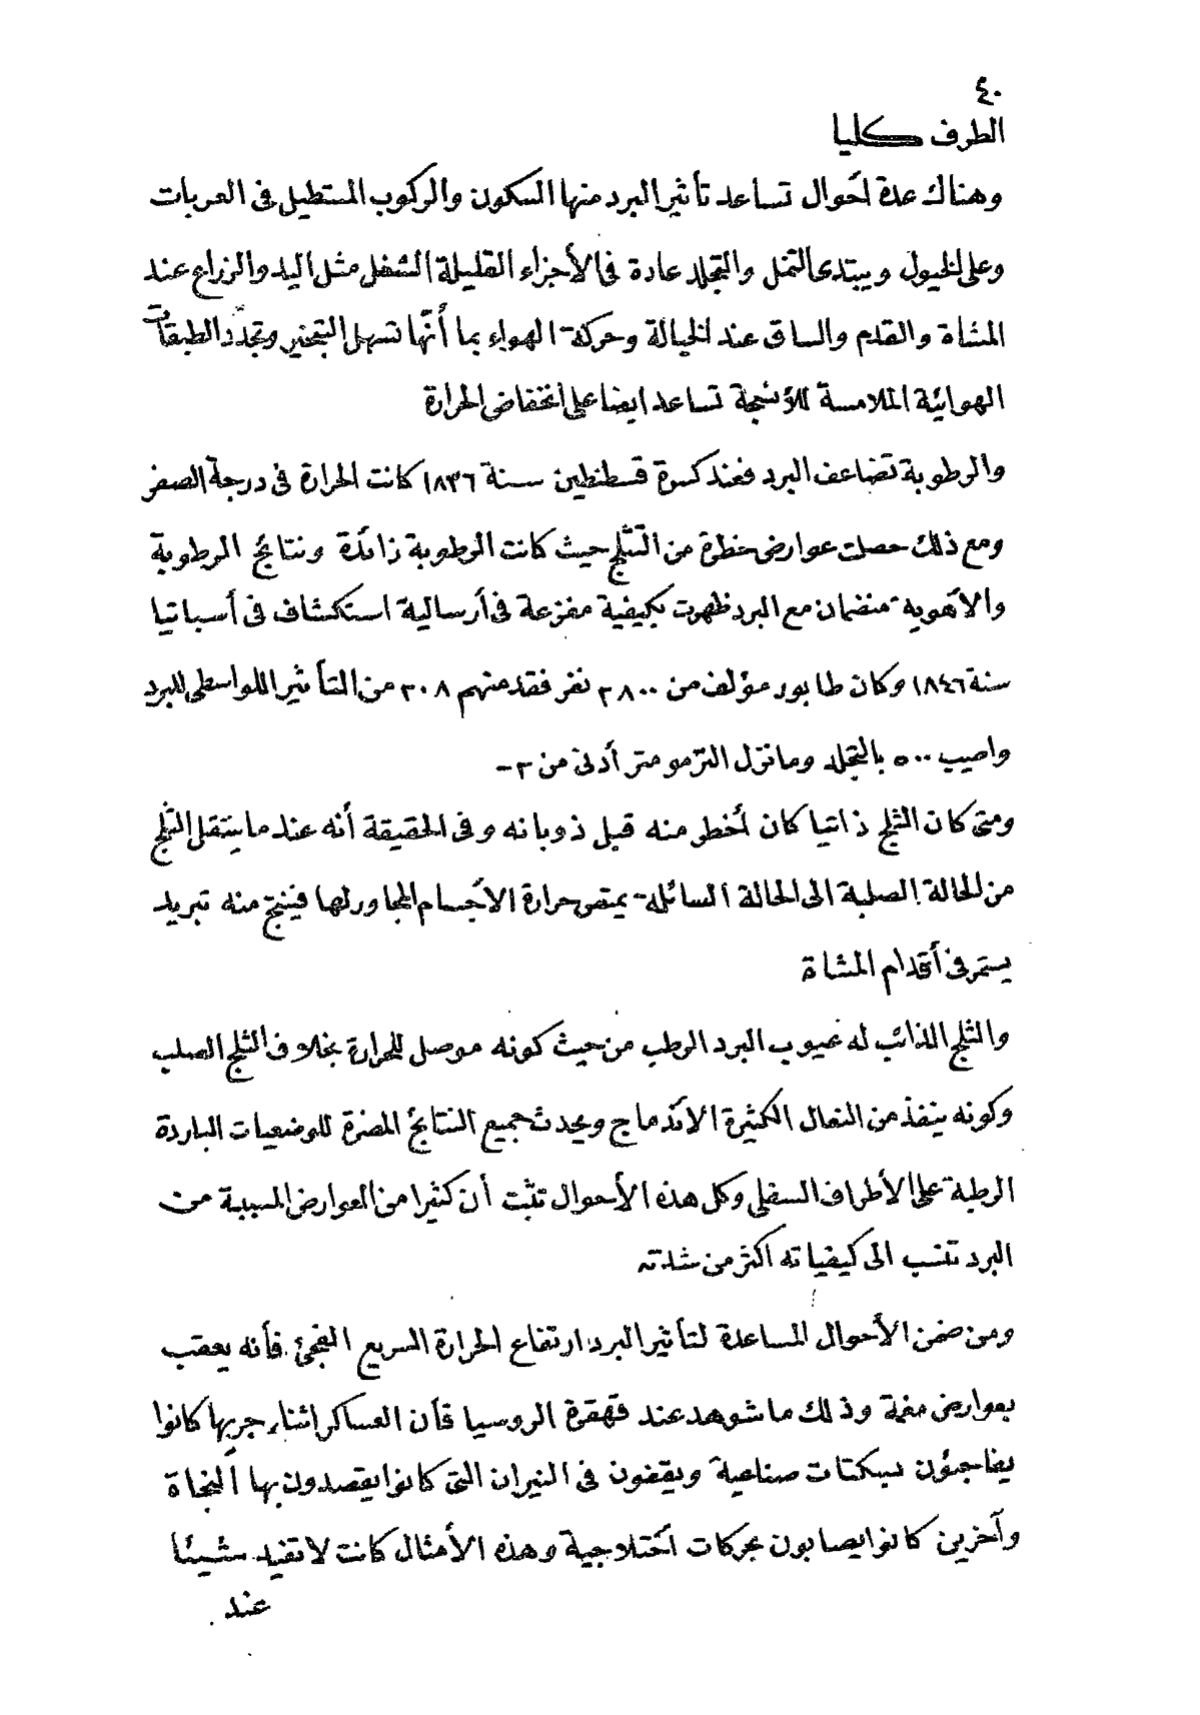 ٤٠
الطرف كليا
وهناك عدة أحوال تساعد تأثير البرد منها السكون والركوب المستطيل فى العربات
وعلى الخيول ويبتدى التمثل والتجلد عادة فى الأجزاء القليلة الشغل مثل اليد والزراع عند
المشاة والقدم والساق عند الخيالة وحركة الهواء بما أنها تسهل التبخير وتجدّد الطبقات
الهوائية الملامسة للأنسجة تساعد ايضا على انخفاض الحرارة
والرطوبة تضاعف البرد فعند كسرة قسطنطين سنة ١٨٣٦ كانت الحرارة فى درجة الصفر
ومع ذلك حصلت عوارض خطرة من التثلج حيث كانت الرطوبة زائدة ونتائج الرطوبة
والأهوية منضمان مع البرد ظهرت بكيفية مفزعة فى أرسالية استكشاف فى أسبانيا
سنة ١٨٤٦ وكان طابور مؤلف من ٢٨٠٠ نفر فقد منهم ٢٠٨ من التأثير اللواسطى للبرد
واصيب ٥٠٠ بالتجلد وما نزل الترمومتر أدنى من ٢-
ومتى كان الثلج ذاتيا كان أخطر منه قبل ذوبانه وفى الحقيقة أنه عند ما ينتقل الثلج
من الحالة الصلبة الى الحالة السائلة يمتص حرارة الأجسام المجاورلها فينتج منه تبريد
يستمر فى أقدام المشاة
والثلج الذائب له عيوب البرد الرطب من حيث كونه موصل للحرارة بخلاف الثلج الصلب
وكونه ينفذ من النعال الكثيرة الاندماج ويحدث جميع النتائج المضرة للوضعيات الباردة
الرطبة على الأطراف السفلى وكل هذه الأحوال تثبت أن كثيرا من العوارض المسببة من
البرد تنسب الى كيفياته أكثر من شدته
ومن ضمن الأحوال المساعدة لتأثير البرد ارتفاع الحرارة السريع الفجئى فأنه يعقب
بعوارض مغمة وذلك ما شوهد عند قهقرة الروسيا فأن العساكر اثناء جريها كانوا
يفاجئون بسكتات صناعية ويقفون فى النيران التى كانوا يقصدون بها ألنجاة
وآخرين كانوا يصابون بحركات أختلاجية وهذه الأمثال كانت لا تفيد شيئا
عند